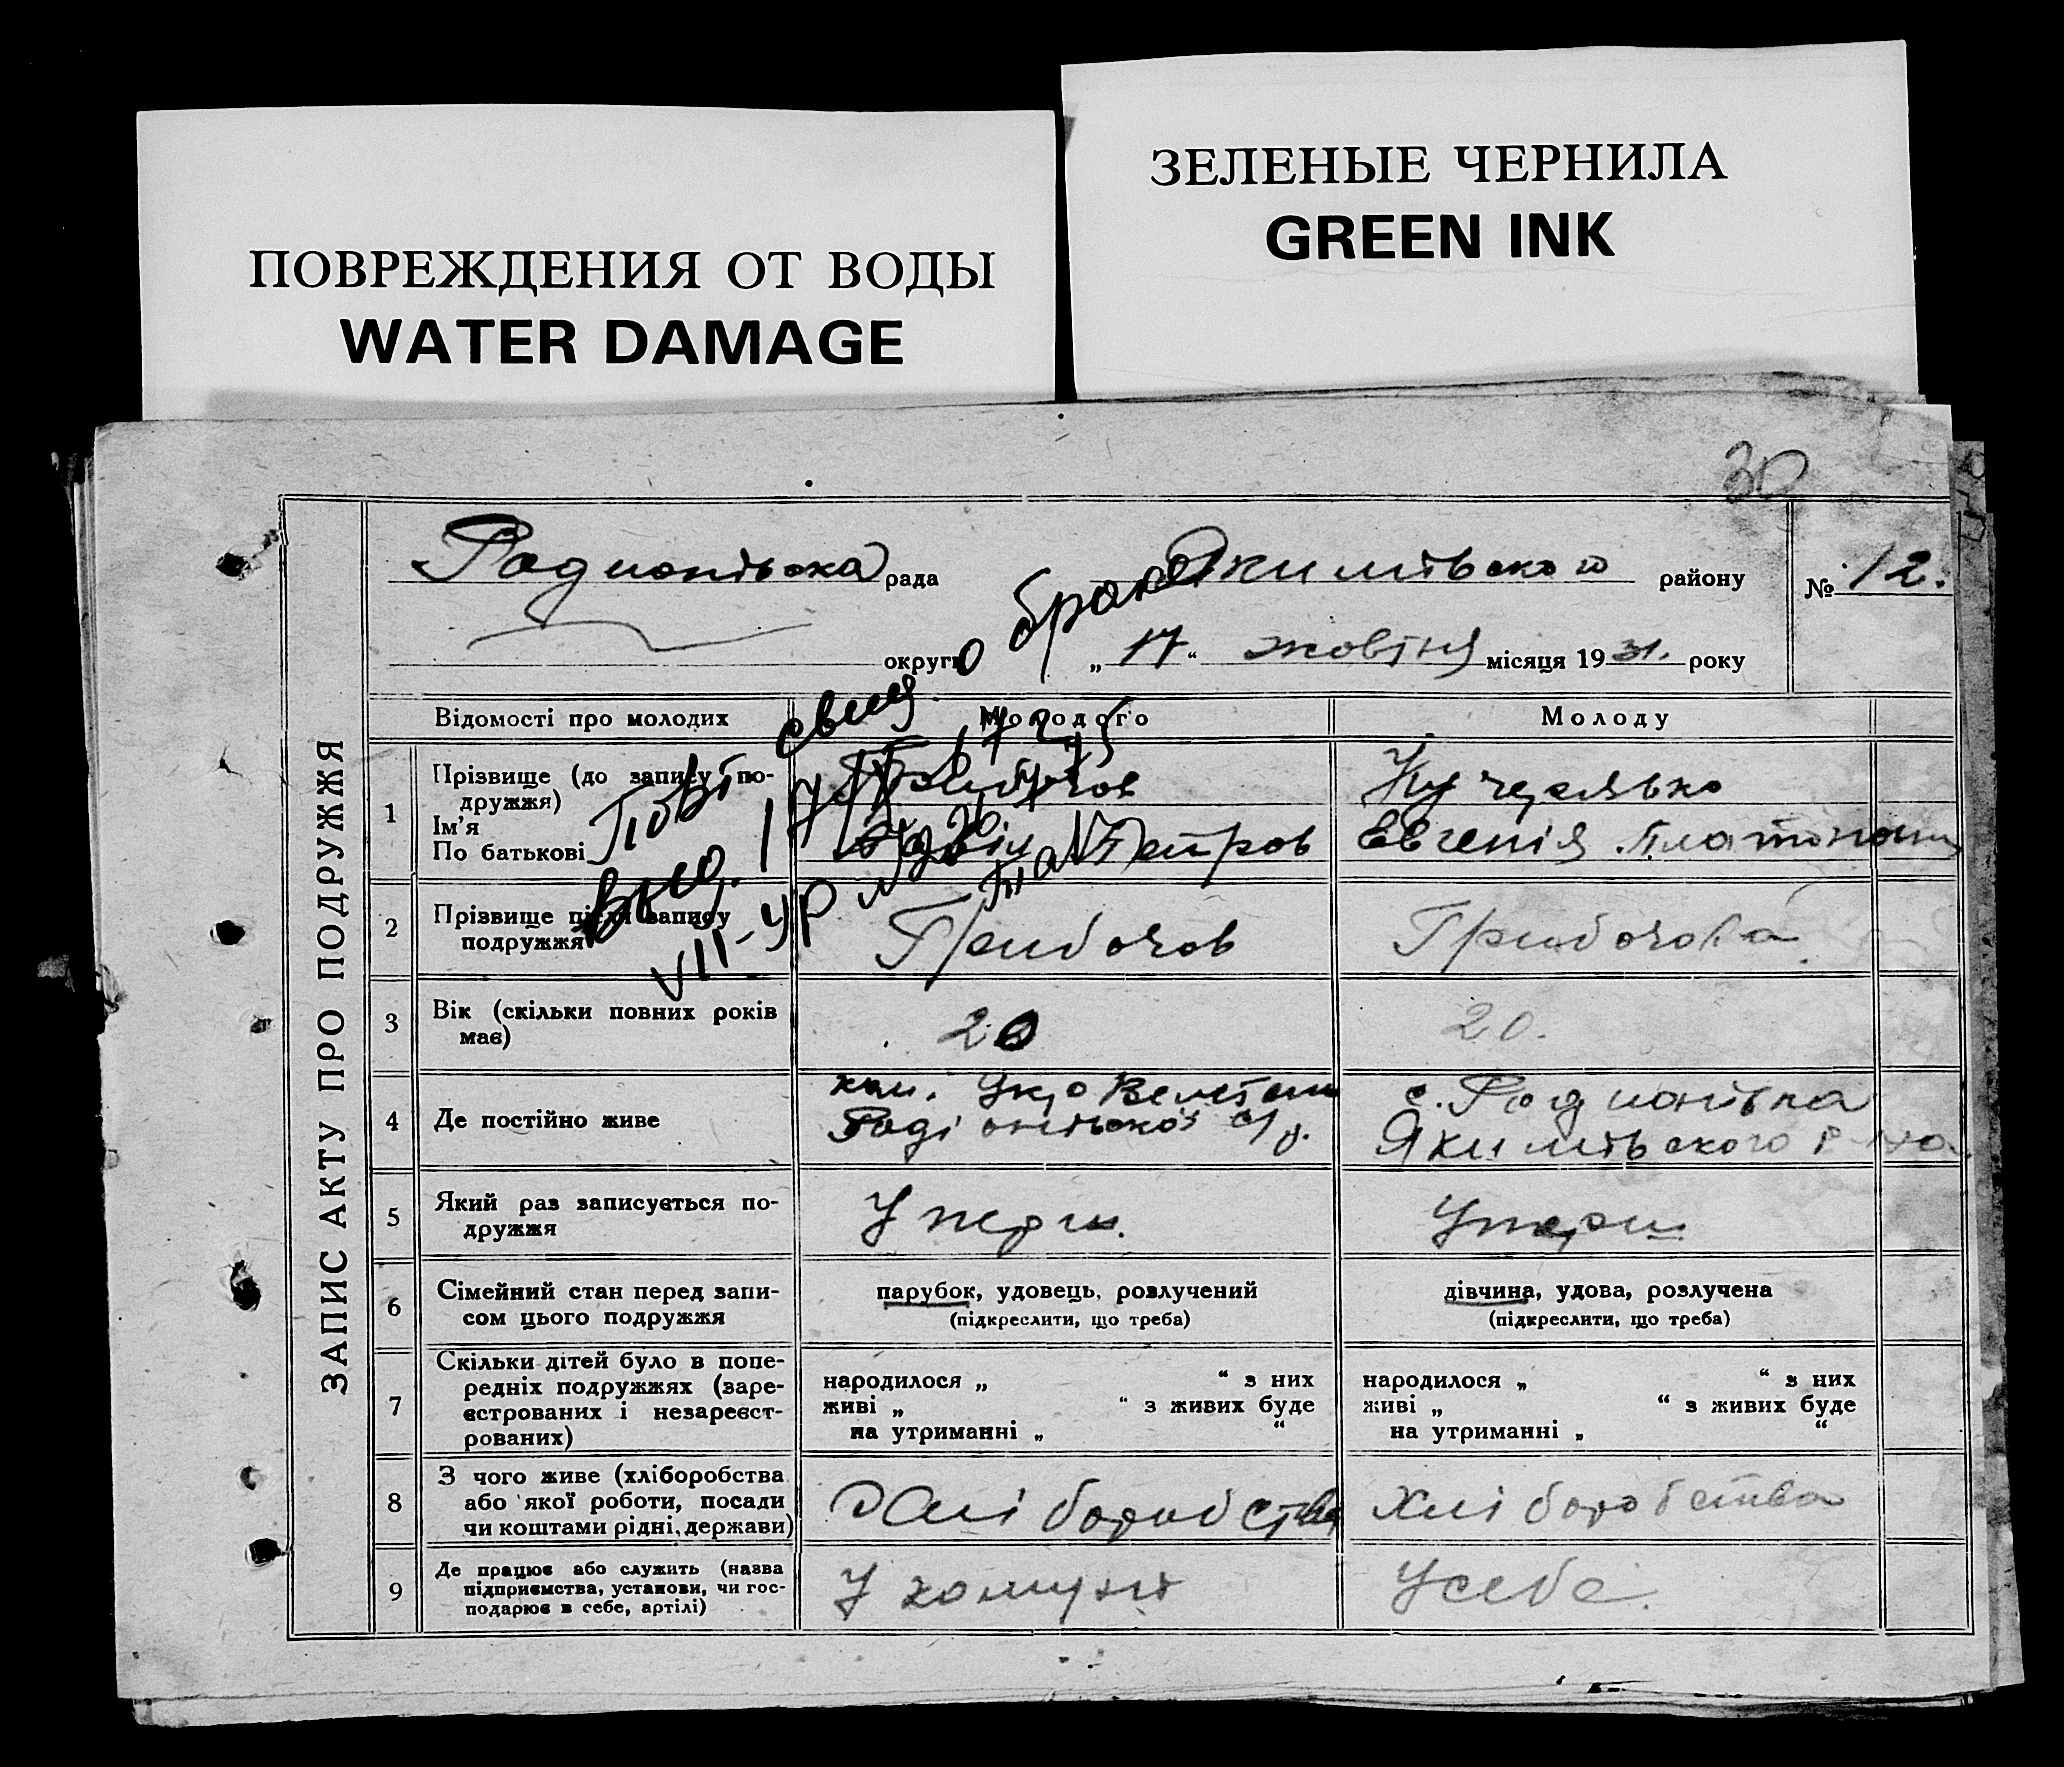 ПОВРЕЖДЕНИЯ ОТ ВОДЫ
WATER DAMAGE
ЗЕЛЕНЫЕ ЧЕРНИЛА
GREEN INK
30
ЗАПИС АКТУ ПРО ПОДРУЖЖЯ
Родионівска рада Якимівського району № 12.
округи „ 17 “ жовтня місяця 19 31. року
Повт свид. о браке
Відомості про молодих Молодого Молоду
1 Прізвище (до запису по-
дружжя)
Ім’я
По батькові
Грибочов
Петров
Кучеренко
Евгенія Платоновн
2 Прізвище після запису
подружжя
Грибочов
Грибочова
3 Вік (скільки повних років
має)
20
20.
4 Де постійно живе
ком.
Родіонівської с/р.
с. Родионівка
Якимівського р-на
5 Який раз записується по-
дружжя
Уперш.
Уперш.
6 Сімейний стан перед запи-
сом цього подружжя
парубок, удовець, розлучений
(підкреслити, що треба)
дівчина, удова, розлучена
(підкреслити, що треба)
7 Скільки дітей було в попе-
редніх подружжях (заре-
єстрованих і незареєст-
рованих)
народилося „ “ з них
живі „ “ з живих буде
на утриманні „ “
народилося „ “ з них
живі „ “ з живих буде
на утриманні „ “
8 З чого живе (хліборобства
або якої роботи, посади
чи коштами рідні, держави)
Хліборобства
Хліборобства
9 Де працює або служить (назва
підприємства, установи, чи гос-
подарює в себе, артілі)
У комуні
У себе.